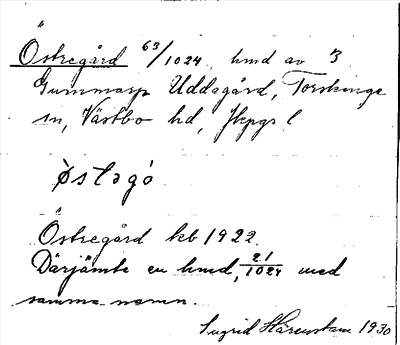 Östregård 63/1024, hmd av 3
Gummarp Uddagård, Torskinge
sn, Västbo hd, Jkpgs l
Östregård kb 1922.
Därjämte en hmd, 21/1024 med
samma namn.
Ingrid Hårenstam 1930